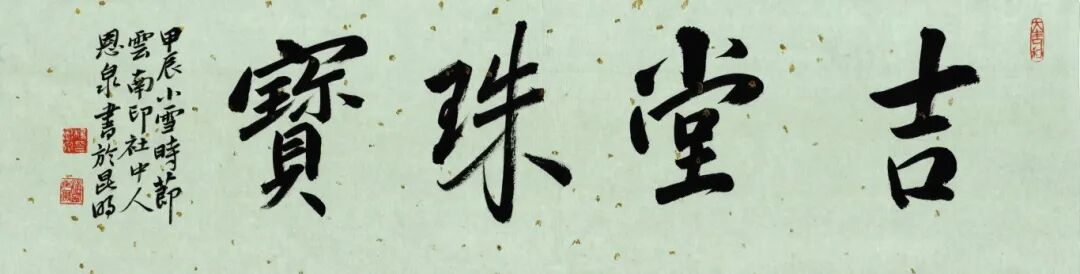 吉堂珠寶
甲辰小雪時節
雲南印社中人
恩泉書於昆明